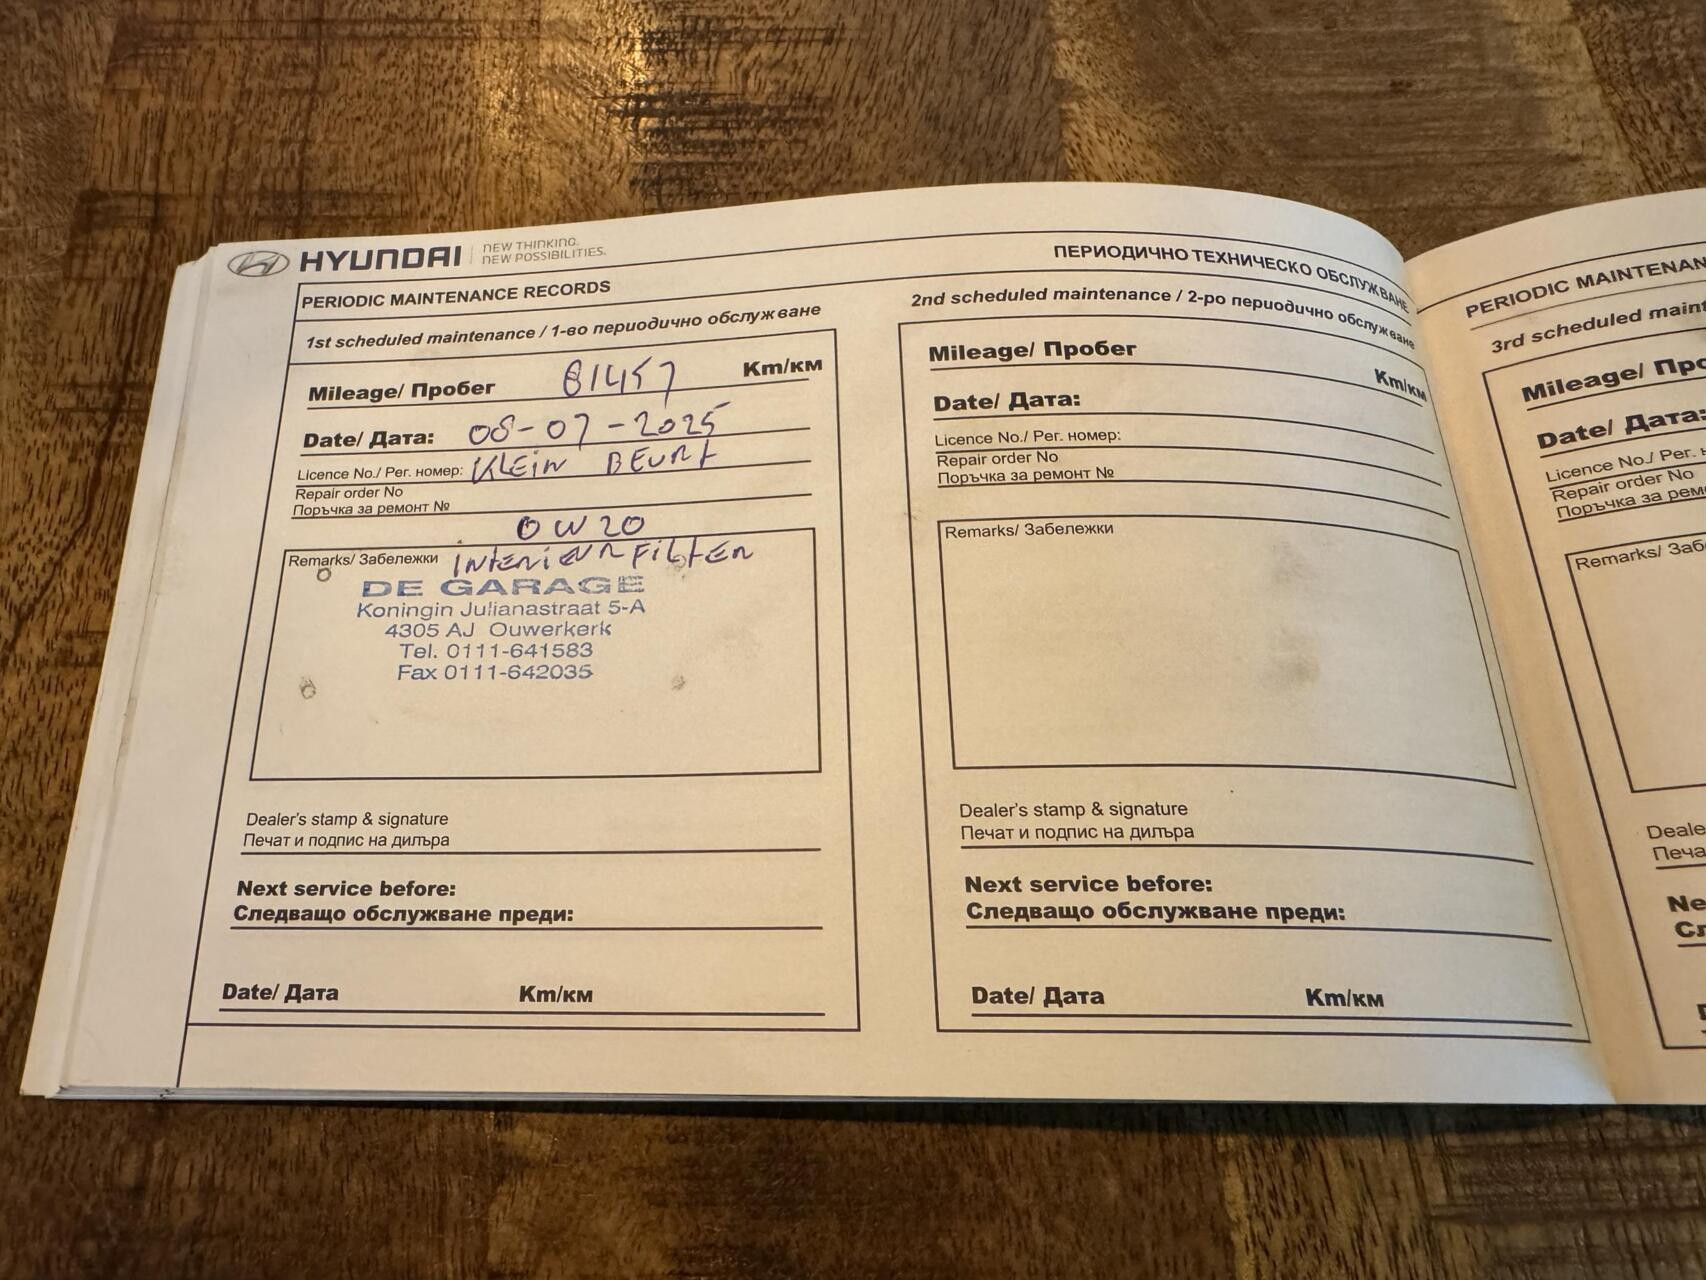 HYUNDAI
NEW THINKING.
NEW POSSIBILITIES.
PERIODIC MAINTENANCE RECORDS
ПЕРИОДИЧНО ТЕХНИЧЕСКО ОБСЛУЖВАНЕ
1st scheduled maintenance / 1-во периодично обслужване
Mileage/ Пробег 81457 Km/км
Date/ Дата: 08-07-2025
Licence No./ Рег. номер: KLEIN BEURT
Repair order No
Поръчка за ремонт №
0W20
Remarks/ Забележки INTERIEURFILTER
DE GARAGE
Koningin Julianastraat 5-A
4305 AJ Ouwerkerk
Tel. 0111-641583
Fax 0111-642035
Dealer's stamp & signature
Печат и подпис на дилъра
Next service before:
Следващо обслужване преди:
Date/ Дата Km/км
2nd scheduled maintenance / 2-ро периодично обслужване
Mileage/ Пробег Km/км
Date/ Дата:
Licence No./ Рег. номер:
Repair order No
Поръчка за ремонт №
Remarks/ Забележки
Dealer's stamp & signature
Печат и подпис на дилъра
Next service before:
Следващо обслужване преди:
Date/ Дата Km/км
PERIODIC MAINTENAN
3rd scheduled maint
Mileage/ Про
Date/ Дата:
Licence No./ Рег.
Repair order No
Поръчка за ремон
Remarks/ Забе
Deale
Печа
Ne
Сл